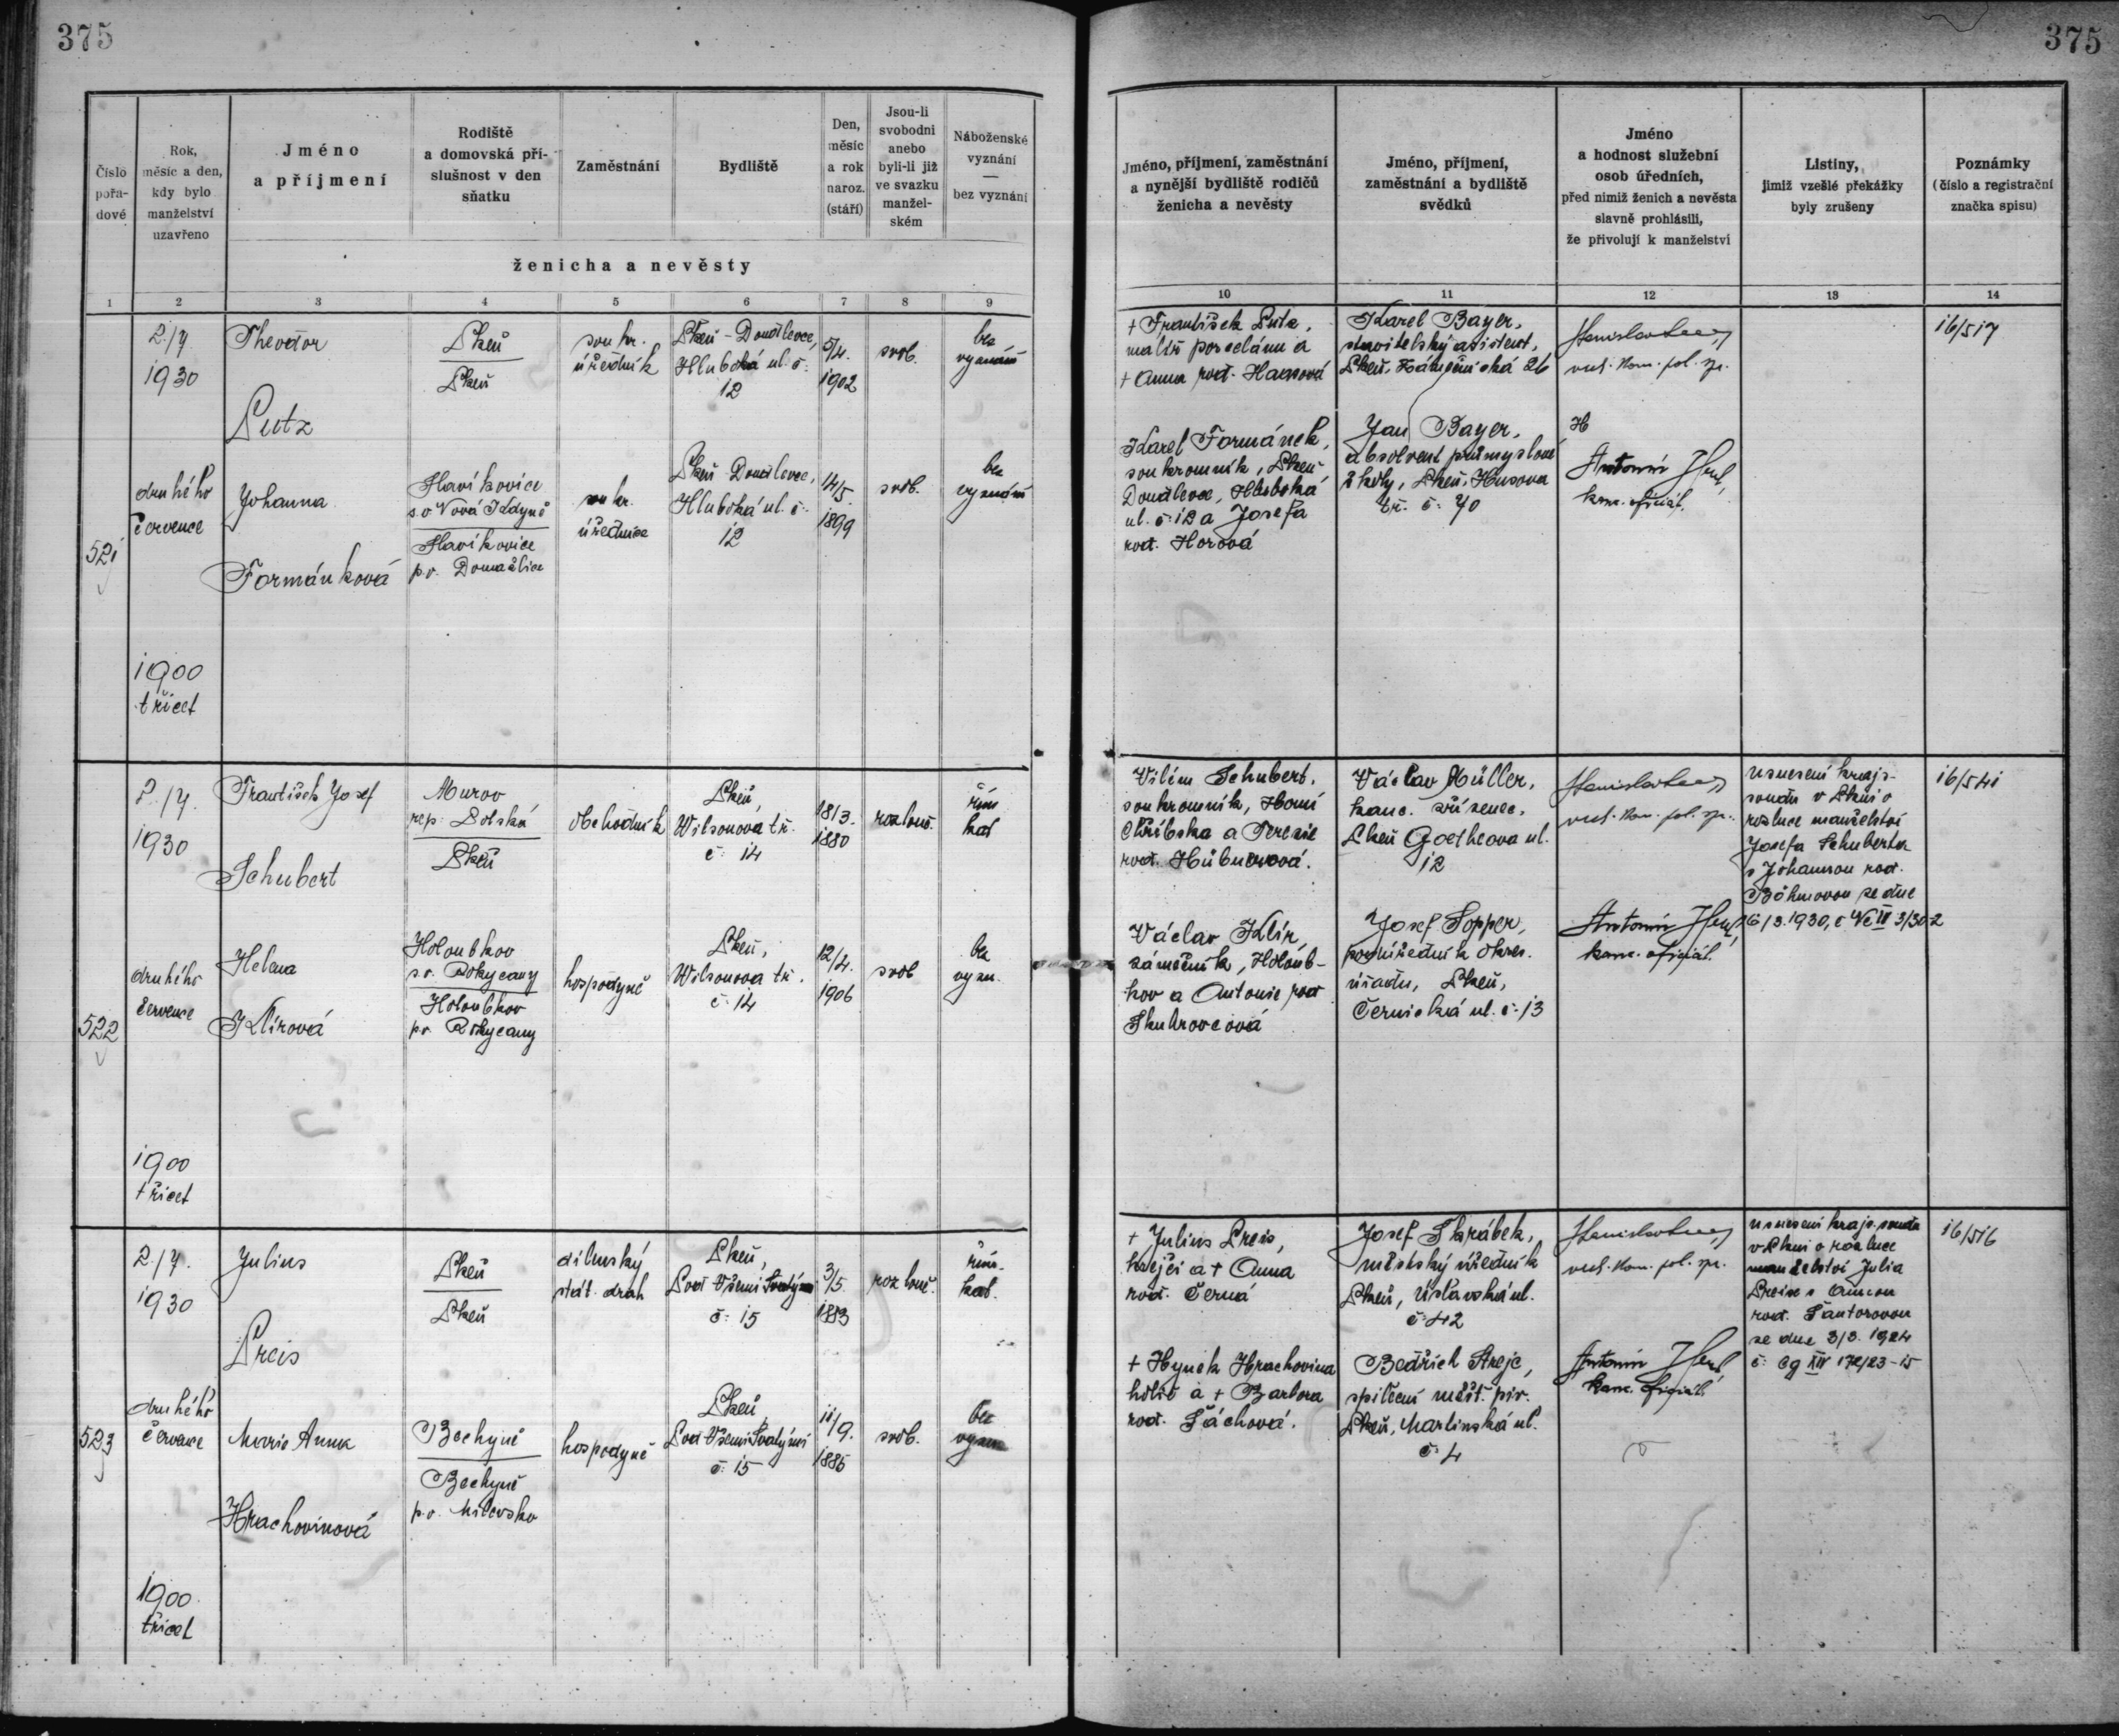 375
375
Číslo
pořa-
dové
Rok,
měsíc a den,
kdy bylo
manželství
uzavřeno
Jméno
a příjmení
Rodiště
a domovská pří-
slušnost v den
sňatku
Zaměstnání
Bydliště
Den,
měsíc
a rok
naroz.
(stáří)
Jsou-li
svobodni
anebo
byli-li již
ve svazku
manžel-
ském
Náboženské
vyznání
—
bez vyznání
ženicha a nevěsty
Jméno, příjmení, zaměstnání
a nynější bydliště rodičů
ženicha a nevěsty
Jméno, příjmení,
zaměstnání a bydliště
svědků
Jméno
a hodnost služební
osob úředních,
před nimiž ženich a nevěsta
slavně prohlásili,
že přivolují k manželství
Listiny,
jimiž vzešlé překážky
byly zrušeny
Poznámky
(číslo a registrační
značka spisu)
1 2 3 4 5 6 7 8 9
10 11 12 13 14
521
2./7
1930
druhého
července
1900
třicet
Theodor
Lutz
Plzeň
Plzeň
soukr.
úředník
Plzeň - Doudlevce,
Hluboká ul. č.
12
5/4.
1902
svob.
bez
vyznání
Johanna
Formánková
Havlkovice
s.o Nová Kdyně
Havlkovice
p.o. Domažlice
soukr.
úřednice
Plzeň - Doudlevce,
Hluboká ul. č.
12
14/5.
1899
svob.
bez
vyznání
+ František Lutz,
malíř porcelánu a
+ Anna rod. Haasová
Karel Formánek,
soukromník, Plzeň
Doudlevce, Hluboká
ul. č. 12 a Josefa
rod. Horová
Karel Bayer,
stavitelský asistent,
Plzeň, 26
Jan Bayer,
absolvent průmyslové
školy, Plzeň, Husova
tř. č. 70
vrch. kom. pol. spr.
Antonín
kanc. oficiál.
16/517
522
2./7.
1930
druhého
července
1900
třicet
František Josef
Schubert
Murov
rep. Polská
Plzeň
obchodník
Plzeň,
Wilsonova tř.
č. 14
18/3.
1880
rozlouč.
řím
kat
Helena
Klírová
Holoubkov
s.o. Rokycany
Holoubkov
p.o. Rokycany
hospodyně
Plzeň,
Wilsonova tř.
č. 14
12/4.
1906
svob
bez
vyzn.
Vilém Schubert,
soukromník, Horní
Chřibska a Terezie
rod. Hübnerová.
Václav Klír,
zámečník, Holoub-
kov a Antonie rod
Skubrovcová
Václav Müller,
kanc. zřízenec,
Plzeň Goetheova ul.
12
Josef Sopper,
podúředník okres.
úřadu, Plzeň,
Černická ul. č. 13
vrch. kom. pol. spr.
Antonín
kanc. oficiál.
Usnesení krajs-
soudu v Plzni o
rozluce manželství
Josefa Schuberta
s Johannou rod.
Böhmovou ze dne
6/3. 1930, č Nc III 3/30-2
16/541
523
2./7.
1930
druhého
července
1900.
třicet
Julius
Preis
Plzeň
Plzeň
dílenský
stát. drah
Plzeň,
Pod Všemi Svatými
č. 15
3/5.
1883
rozlouč.
řím.
kat.
Marie Anna
Hrachovinová
Bechyně
Bechyně
p.o. Milevsko
hospodyně
Plzeň,
Pod Všemi Svatými
č. 15
11/9.
1885
svob.
bez
vyzn
+ Julius Preis,
krejčí a + Anna
rod. Černá
+ Hynek Hrachovina
holič a + Barbora
rod. Šáchová.
Josef Skrábek,
městský úředník
Plzeň, Úslavská ul.
č. 42
Bedřich Krejc,
spilební měšť. piv.
Plzeň, Martinská ul.
č. 4
vrch. kom. pol. spr.
Antonín
kanc. oficiál.
Usnesení krajs. soudu
v Plzni o rozluce
manželství Julia
Preise s Annou
rod. Šantorovou
ze dne 3/3. 1924
č. Cg XIV 172/23-15
16/516